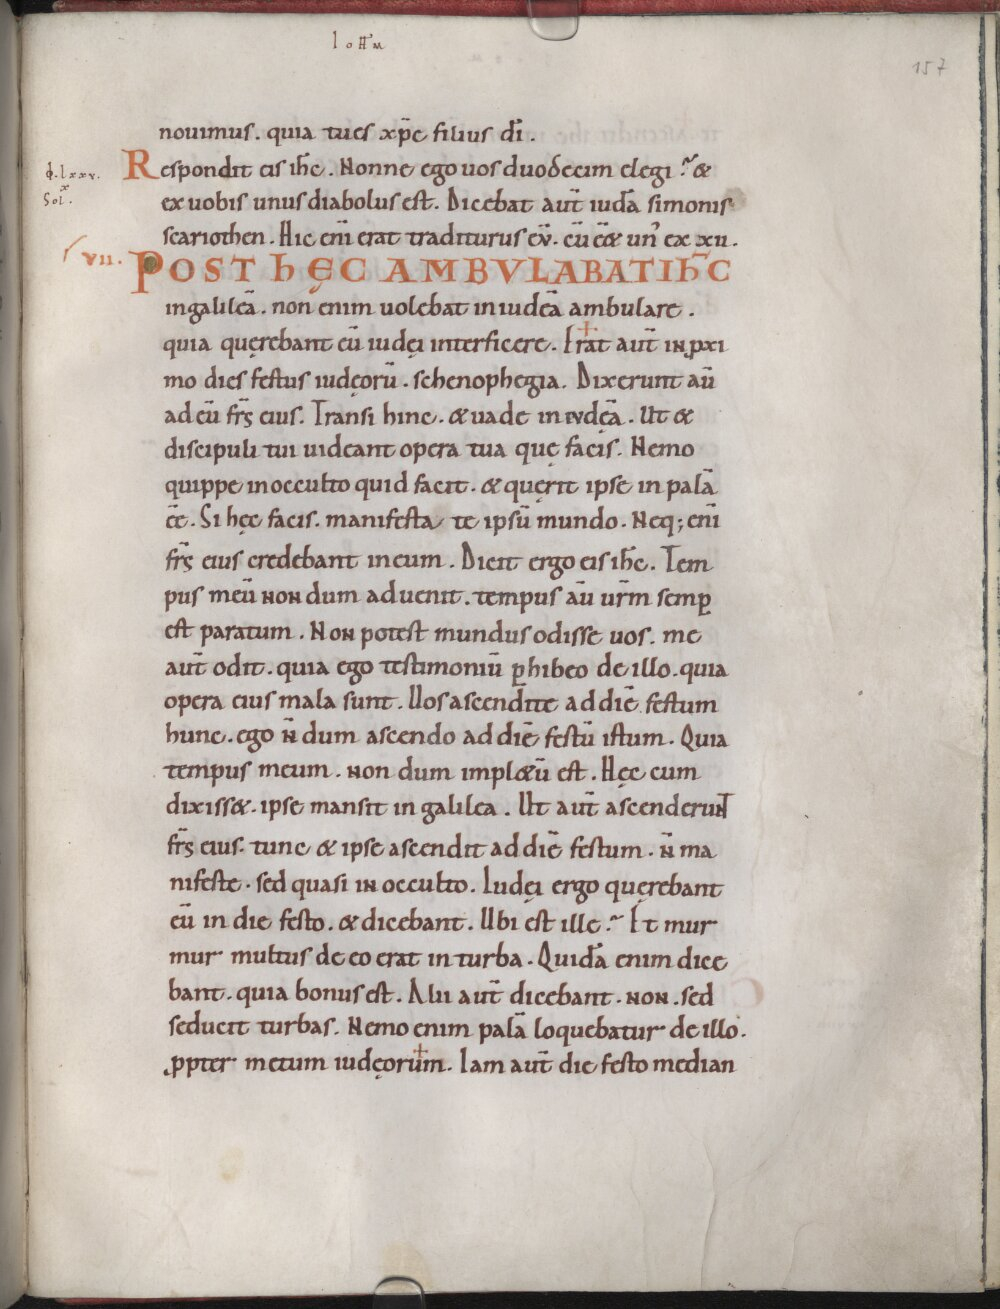 IOHM
157
nouimus. quia tu es xp̄e filius dī.
ϕ. lxxv.
x
Sol.
Respondit eis ihc̄. Nonne ego uos duodecim elegi? &
ex uobis unus diabolus est. Dicebat aut̄ iudā simonis
scariothen. Hic enī erat traditurus eū. cū eēt un' ex xii.
VII.
POST HĘC AMBVLABAT IHC̄
in galileā. non enim uolebat in iudeā ambulare.
quia quęrebant eū iudęi interficere. Erat aut̄ in ꝓxi
mo dies festus iudęorū. schenophegia. Dixerunt aū
ad eū frs̄ eius. Transi hinc. & uade in iudęā. Ut &
discipuli tui uideant opera tua quę facis. Nemo
quippe in occulto quid facit. & quęrit ipse in palā
eē. Si hęc facis. manifesta te ipsū mundo. Neq; enī
frs̄ eius credebant in eum. Dicit ergo eis ihc̄. Tem
pus meū non dum aduenit. tempus aū ur̄m semp̄
est paratum. Non potest mundus odisse uos. me
aut̄ odit. quia ego testimoniū ꝑhibeo de illo. quia
opera eius mala sunt. Uos ascendite ad diē festum
hunc. ego n̄ dum ascendo ad diē festū istum. Quia
tempus meum. non dum impl&ū est. Hęc cum
dixiss&. ipse mansit in galilea. Ut aut̄ ascenderunt
frs̄ eius. tunc & ipse ascendit ad diē festum. n̄ ma
nifeste. sed quasi in occulto. Iudęi ergo quęrebant
eū in die festo. & dicebant. Ubi est ille? Et mur
mur multus de eo erat in turba. Quidā enim dice
bant. quia bonus est. Alii aut̄ dicebant. non. sed
seducit turbas. Nemo enim palā loquebatur de illo.
ꝓpter metum iudęorum. Iam aut̄ die festo median